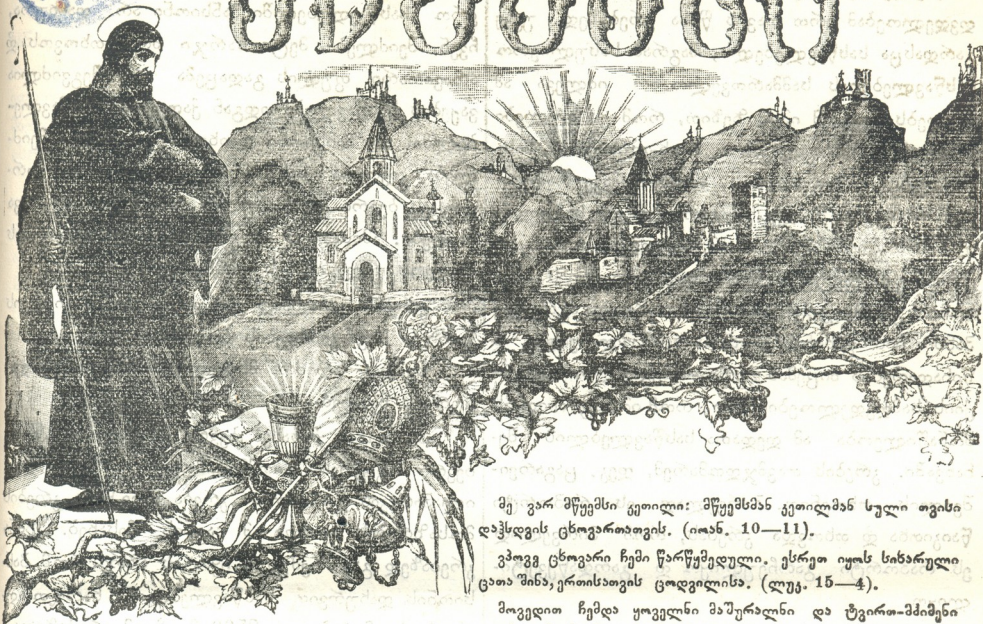 მწყემსი
მე: ვარ მწყემსი კეთილი: მწყემსმან კეთილმან სული თვისი
დაჰსდვის ცხოვართათვის. (იოან. 10—11).
ვპოვე ცხოვარი ჩემი წარწყმედული. ესრეთ იყოს სიხარული
ცათა შინა, ერთისათვის ცოდვილისა. (ლუკ. 15—4).
მოვედით ჩემდა ყოველნი მაშურალნი და ტვირთ-მძიმენი